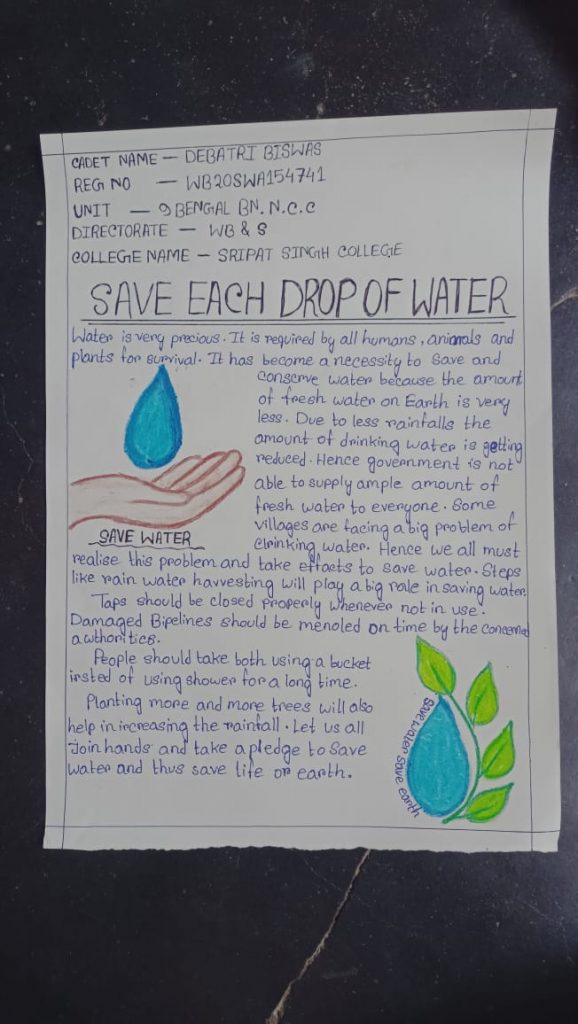 CADET NAME — DEBATRI BISWAS
REG NO — WB20SWA154741
UNIT — 9 BENGAL BN. N.C.C
DIRECTORATE — WB & S
COLLEGE NAME — SRIPAT SINGH COLLEGE
SAVE EACH DROP OF WATER
Water is very precious. It is required by all humans, animals and
plants for survival. It has become a necessity to save and
conserve water because the amount
of fresh water on Earth is very
less. Due to less rainfalls the
amount of drinking water is getting
reduced. Hence government is not
able to supply ample amount of
fresh water to everyone. Some
villages are facing a big problem of
drinking water. Hence we all must
SAVE WATER
realise this problem and take effacts to save water. Steps
like rain water harvesting will play a big role in saving water.
Taps should be closed properly whenever not in use.
Damaged Bipelines should be menoled on time by the concerned
authoritics.
People should take both using a bucket
insted of using shower for a long time.
Planting more and more trees will also
help in increasing the rainfall. Let us all
Join hands and take a pledge to save
water and thus save life or earth.
Save water save earth